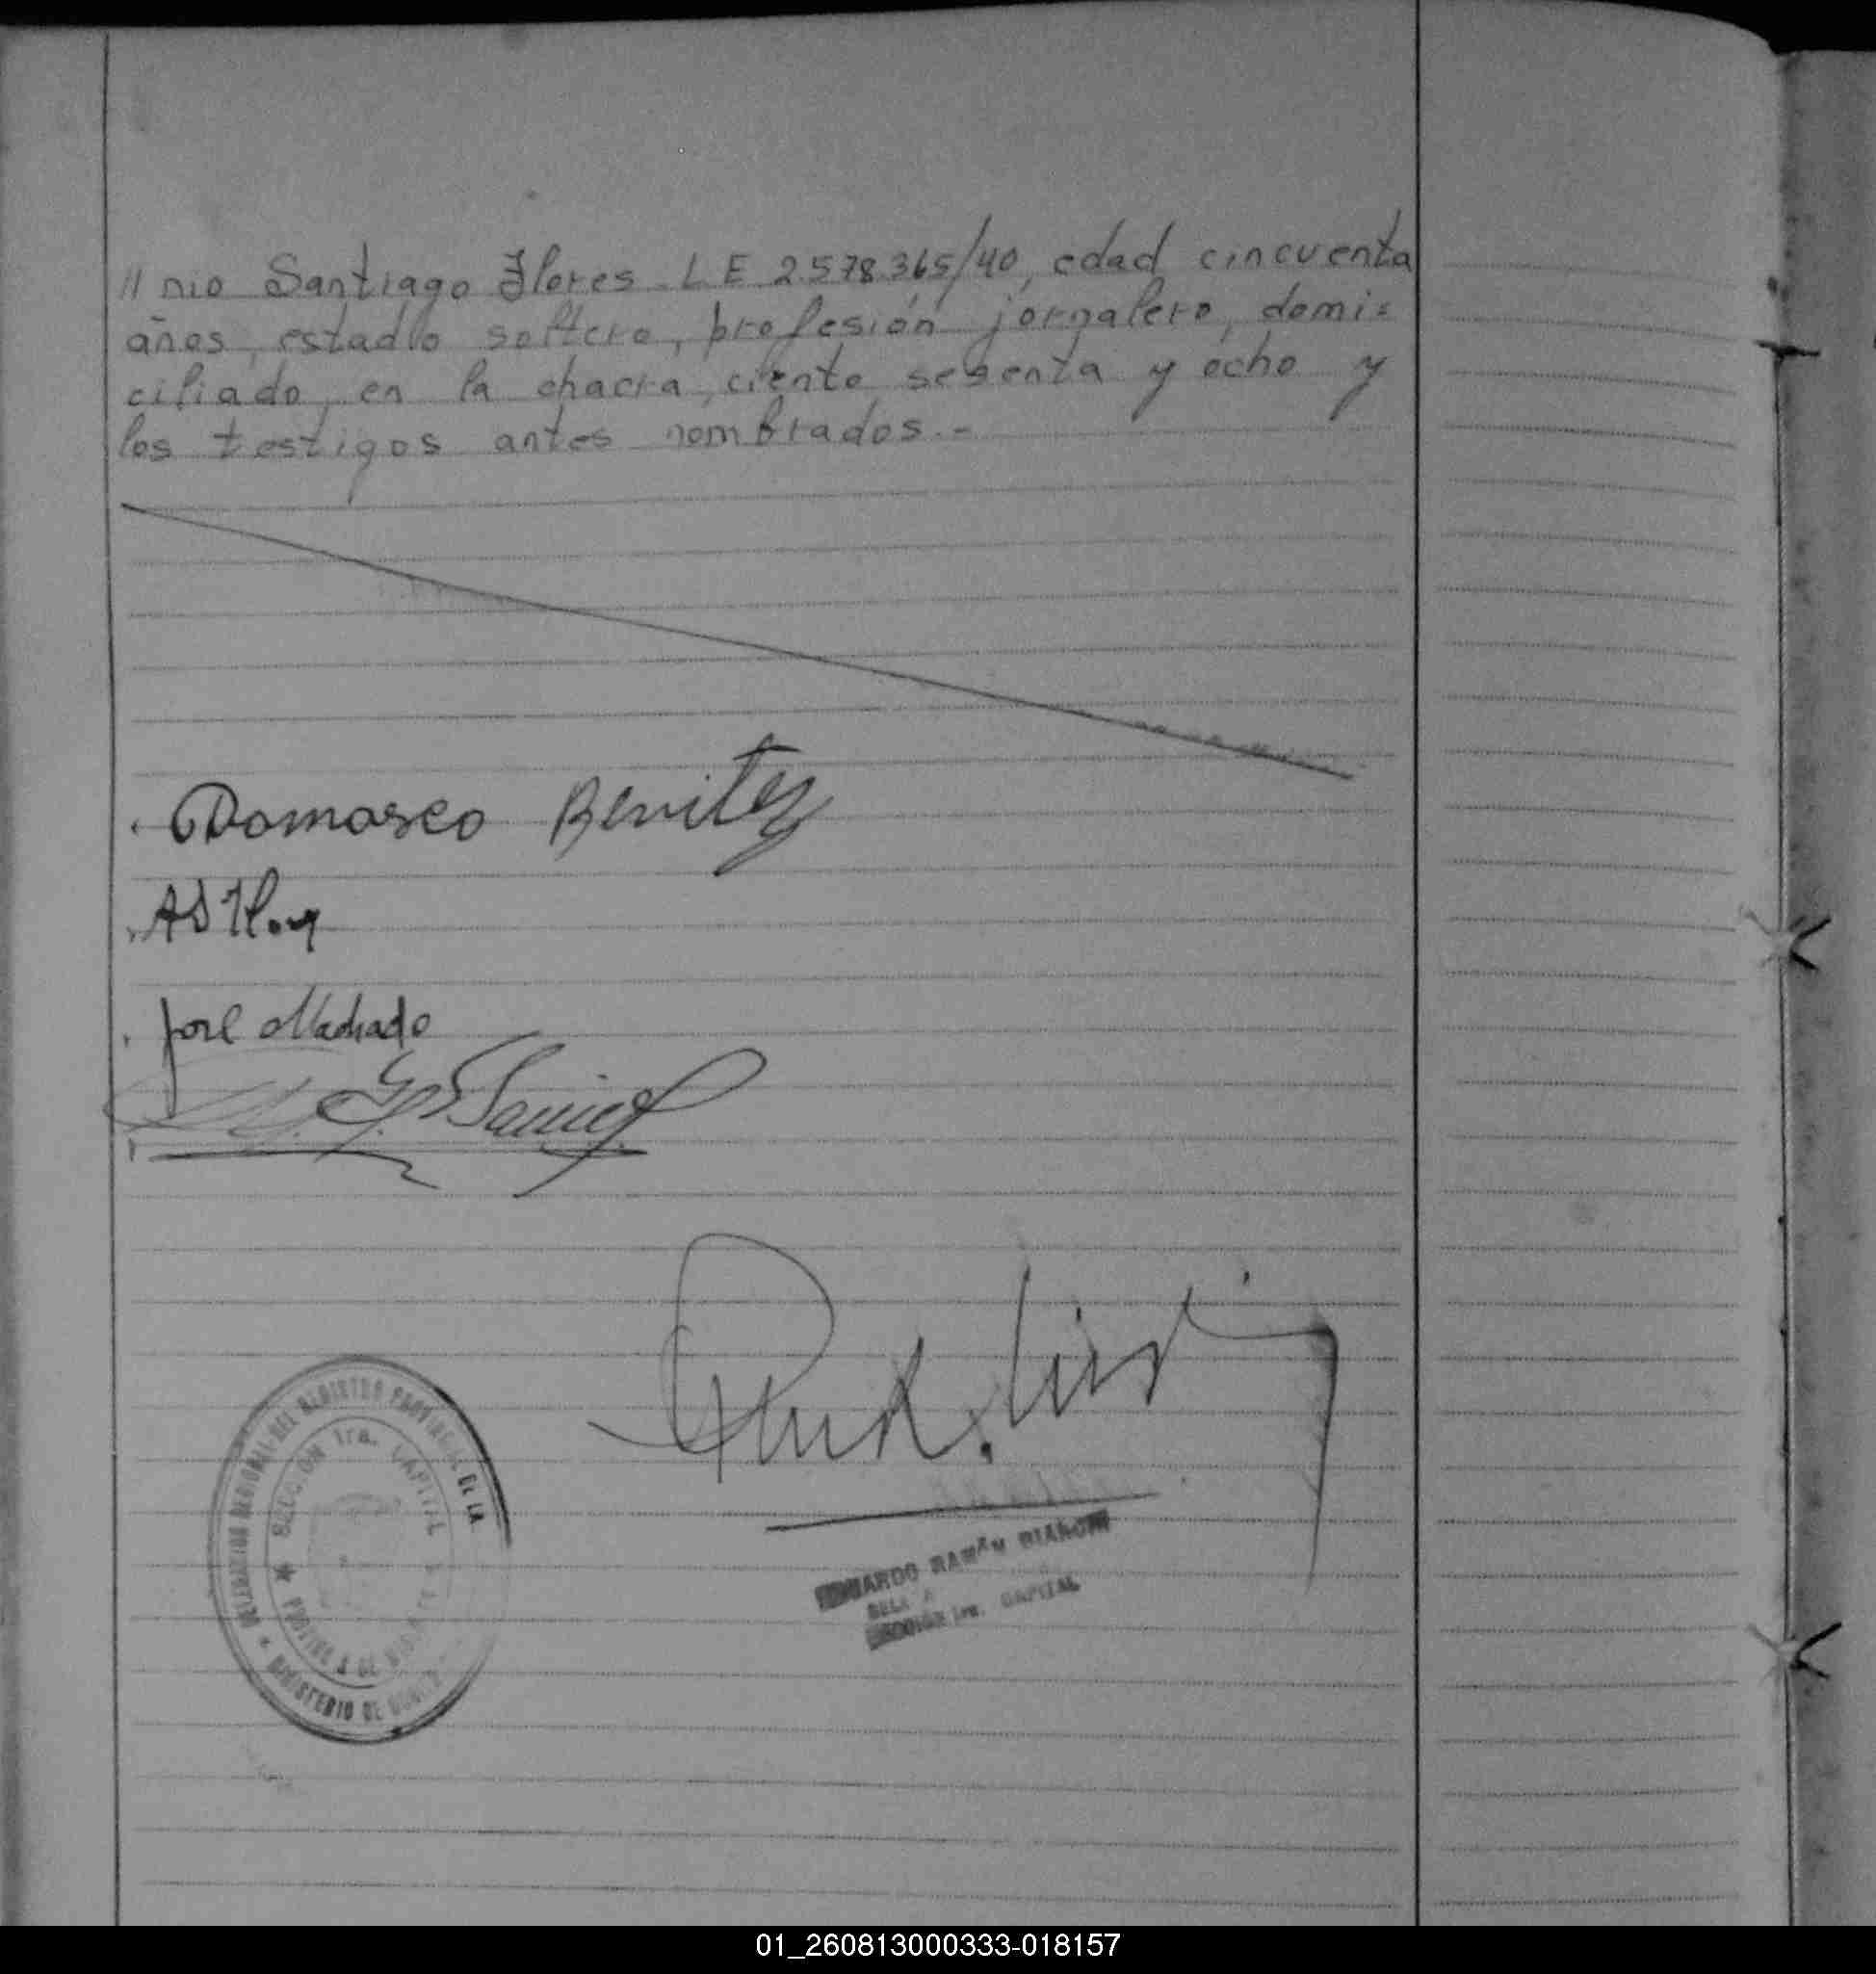 // nio Santiago Flores. LE 2.578.365/40, edad cincuenta
años, estado soltero, profesión jornalero, domi=
ciliado, en la chacra, ciento sesenta y ocho y
los testigos antes nombrados.-
Domasco Benitez
José Machado
DELEGACION REGIONAL DEL REGISTRO PROVINCIAL DE LA
SECCION 1ra. CAPITAL
PROVINCIA DE
MINISTERIO DE
EDUARDO RAMÓN BIANCHI
SECCIÓN 1ra. CAPITAL
01_260813000333-018157